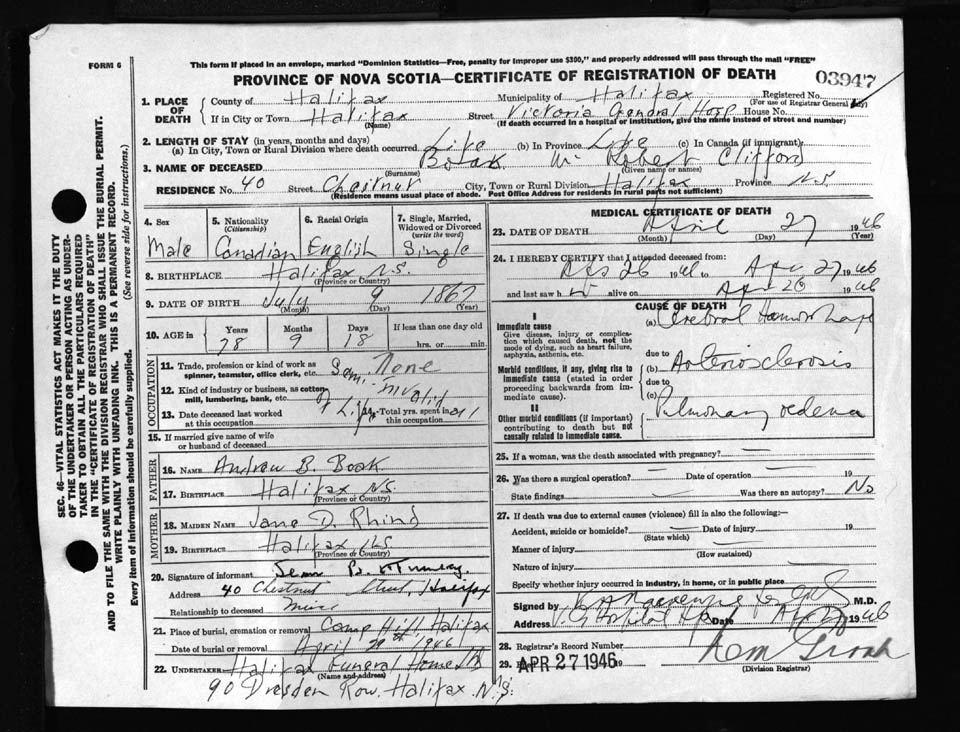 FORM 6
This form if placed in an envelope, marked "Dominion Statistics—Free, penalty for improper use $300," and properly addressed will pass through the mail "FREE"
PROVINCE OF NOVA SCOTIA—CERTIFICATE OF REGISTRATION OF DEATH
03947
1. PLACE OF DEATH
County of Halifax Municipality of Halifax Registered No.
(For use of Registrar General only)
If in City or Town Halifax Street Victoria General Hosp House No.
(Name) (If death occurred in a hospital or institution, give the name instead of street and number)
2. LENGTH OF STAY (in years, months and days)
(a) In City, Town or Rural Division where death occurred Life (b) In Province Life (c) In Canada (if immigrant)
3. NAME OF DECEASED Boak Robert Clifford
(Surname) (Given name or names)
RESIDENCE No. 40 Street Chestnut City, Town or Rural Division Halifax Province N.S.
(Residence means usual place of abode. Post Office Address for residents in rural parts not sufficient)
4. Sex Male
5. Nationality (Citizenship) Canadian
6. Racial Origin English
7. Single, Married, Widowed or Divorced (write the word) Single
8. BIRTHPLACE Halifax N.S.
(Province or Country)
9. DATE OF BIRTH July 9 1867
(Month) (Day) (Year)
10. AGE in Years Months Days If less than one day old
78 9 18 hrs. or min.
OCCUPATION
11. Trade, profession or kind of work as spinner, teamster, office clerk, etc. None
12. Kind of industry or business, as cotton mill, lumbering, bank, etc. Semi-invalid
13. Date deceased last worked at this occupation Total yrs. spent in this occupation
15. If married give name of wife or husband of deceased
FATHER
16. NAME Andrew B. Boak
17. BIRTHPLACE Halifax N.S.
(Province or Country)
MOTHER
18. MAIDEN NAME Jane D. Rhind
19. BIRTHPLACE Halifax N.S.
(Province or Country)
20. Signature of informant
Address 40 Chestnut Street, Halifax
Relationship to deceased
21. Place of burial, cremation or removal Camp Hill, Halifax
Date of burial or removal April 29th 1946
22. UNDERTAKER Halifax Funeral Home
(Name and address)
90 Dresden Row. Halifax N.S.
MEDICAL CERTIFICATE OF DEATH
23. DATE OF DEATH April 27 1946
(Month) (Day) (Year)
24. I HEREBY CERTIFY that I attended deceased from:
26 1946 to Apr 27 1946
and last saw h alive on Apr 1946
CAUSE OF DEATH
I
Immediate cause
Give disease, injury or complication which caused death, not the mode of dying, such as heart failure, asphyxia, asthenia, etc.
(a) Cerebral Hemorrhage
due to
Morbid conditions, if any, giving rise to immediate cause (stated in order proceeding backwards from immediate cause)
(b) Arteriosclerosis
due to
(c)
II
Other morbid conditions (if important) contributing to death but not causally related to immediate cause.
Pulmonary oedema
25. If a woman, was the death associated with pregnancy?
26. Was there a surgical operation? Date of operation 19
State findings Was there an autopsy? No
27. If death was due to external causes (violence) fill in also the following:—
Accident, suicide or homicide? Date of injury 19
(State which)
Manner of injury
(How sustained)
Nature of injury
Specify whether injury occurred in industry, in home, or in public place
Signed by M.D.
Address V. G. Hospital Date 1946
28. Registrar's Record Number
29. APR 27 1946 19
(Division Registrar)
SEC. 46—VITAL STATISTICS ACT MAKES IT THE DUTY
OF THE UNDERTAKER OR PERSON ACTING AS UNDER-
TAKER TO OBTAIN ALL THE PARTICULARS REQUIRED
IN THE "CERTIFICATE OF REGISTRATION OF DEATH"
AND TO FILE THE SAME WITH THE DIVISION REGISTRAR WHO SHALL ISSUE THE BURIAL PERMIT.
WRITE PLAINLY WITH UNFADING INK. THIS IS A PERMANENT RECORD.
Every item of information should be carefully supplied. (See reverse side for instructions.)